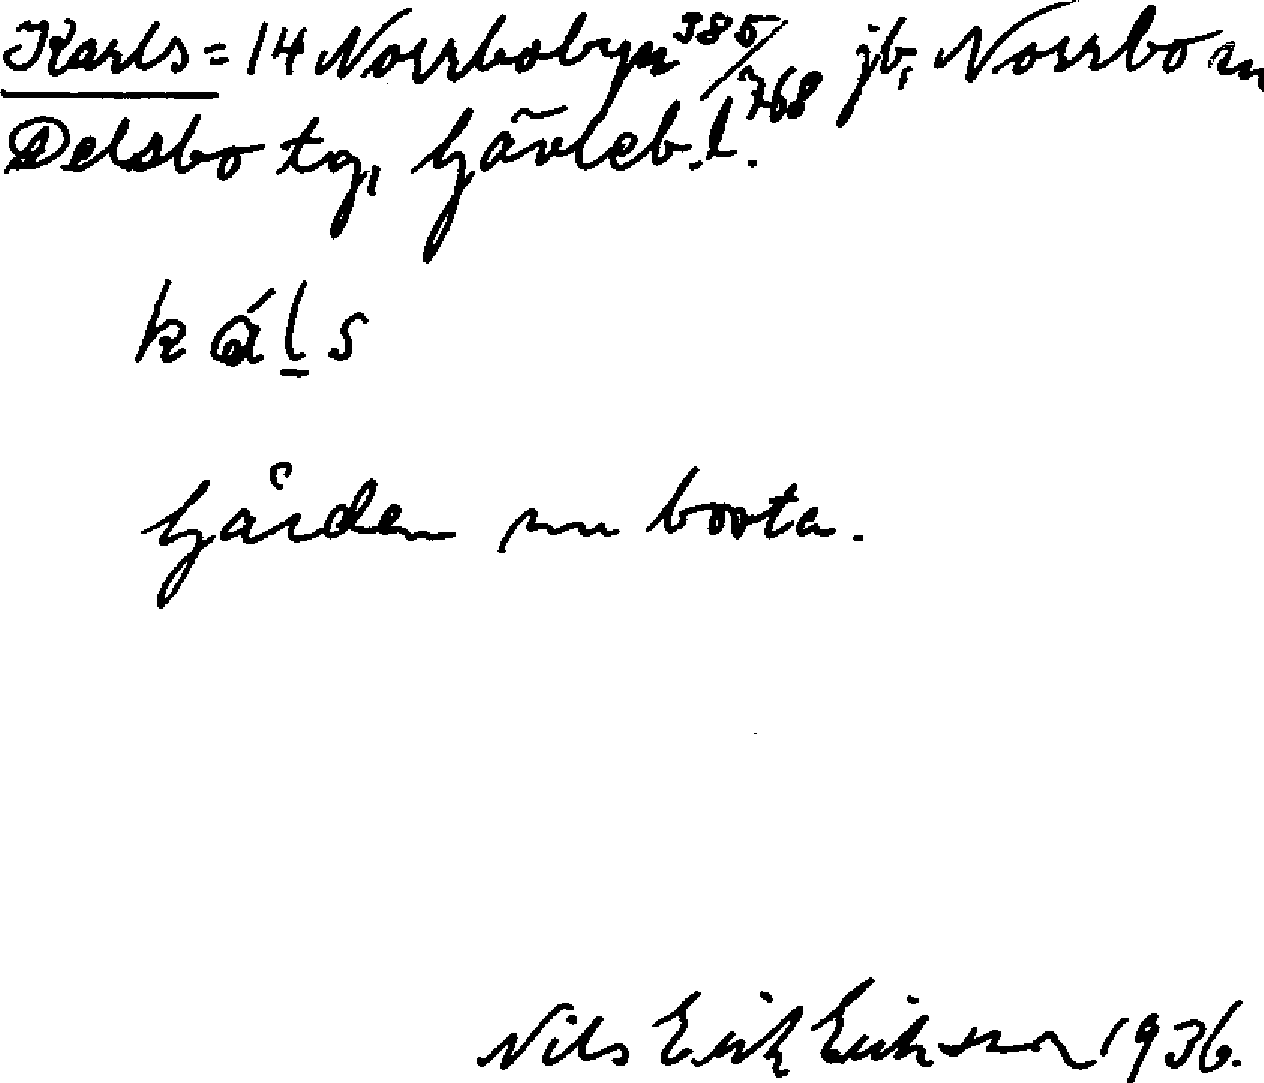 Karls = 14 Norrbobyn 385/768 jb, Norrbo sn
Delsbo tg, Gävleb. l.
káls
Gården nu borta.
Nils Erik Eriksson 1936.